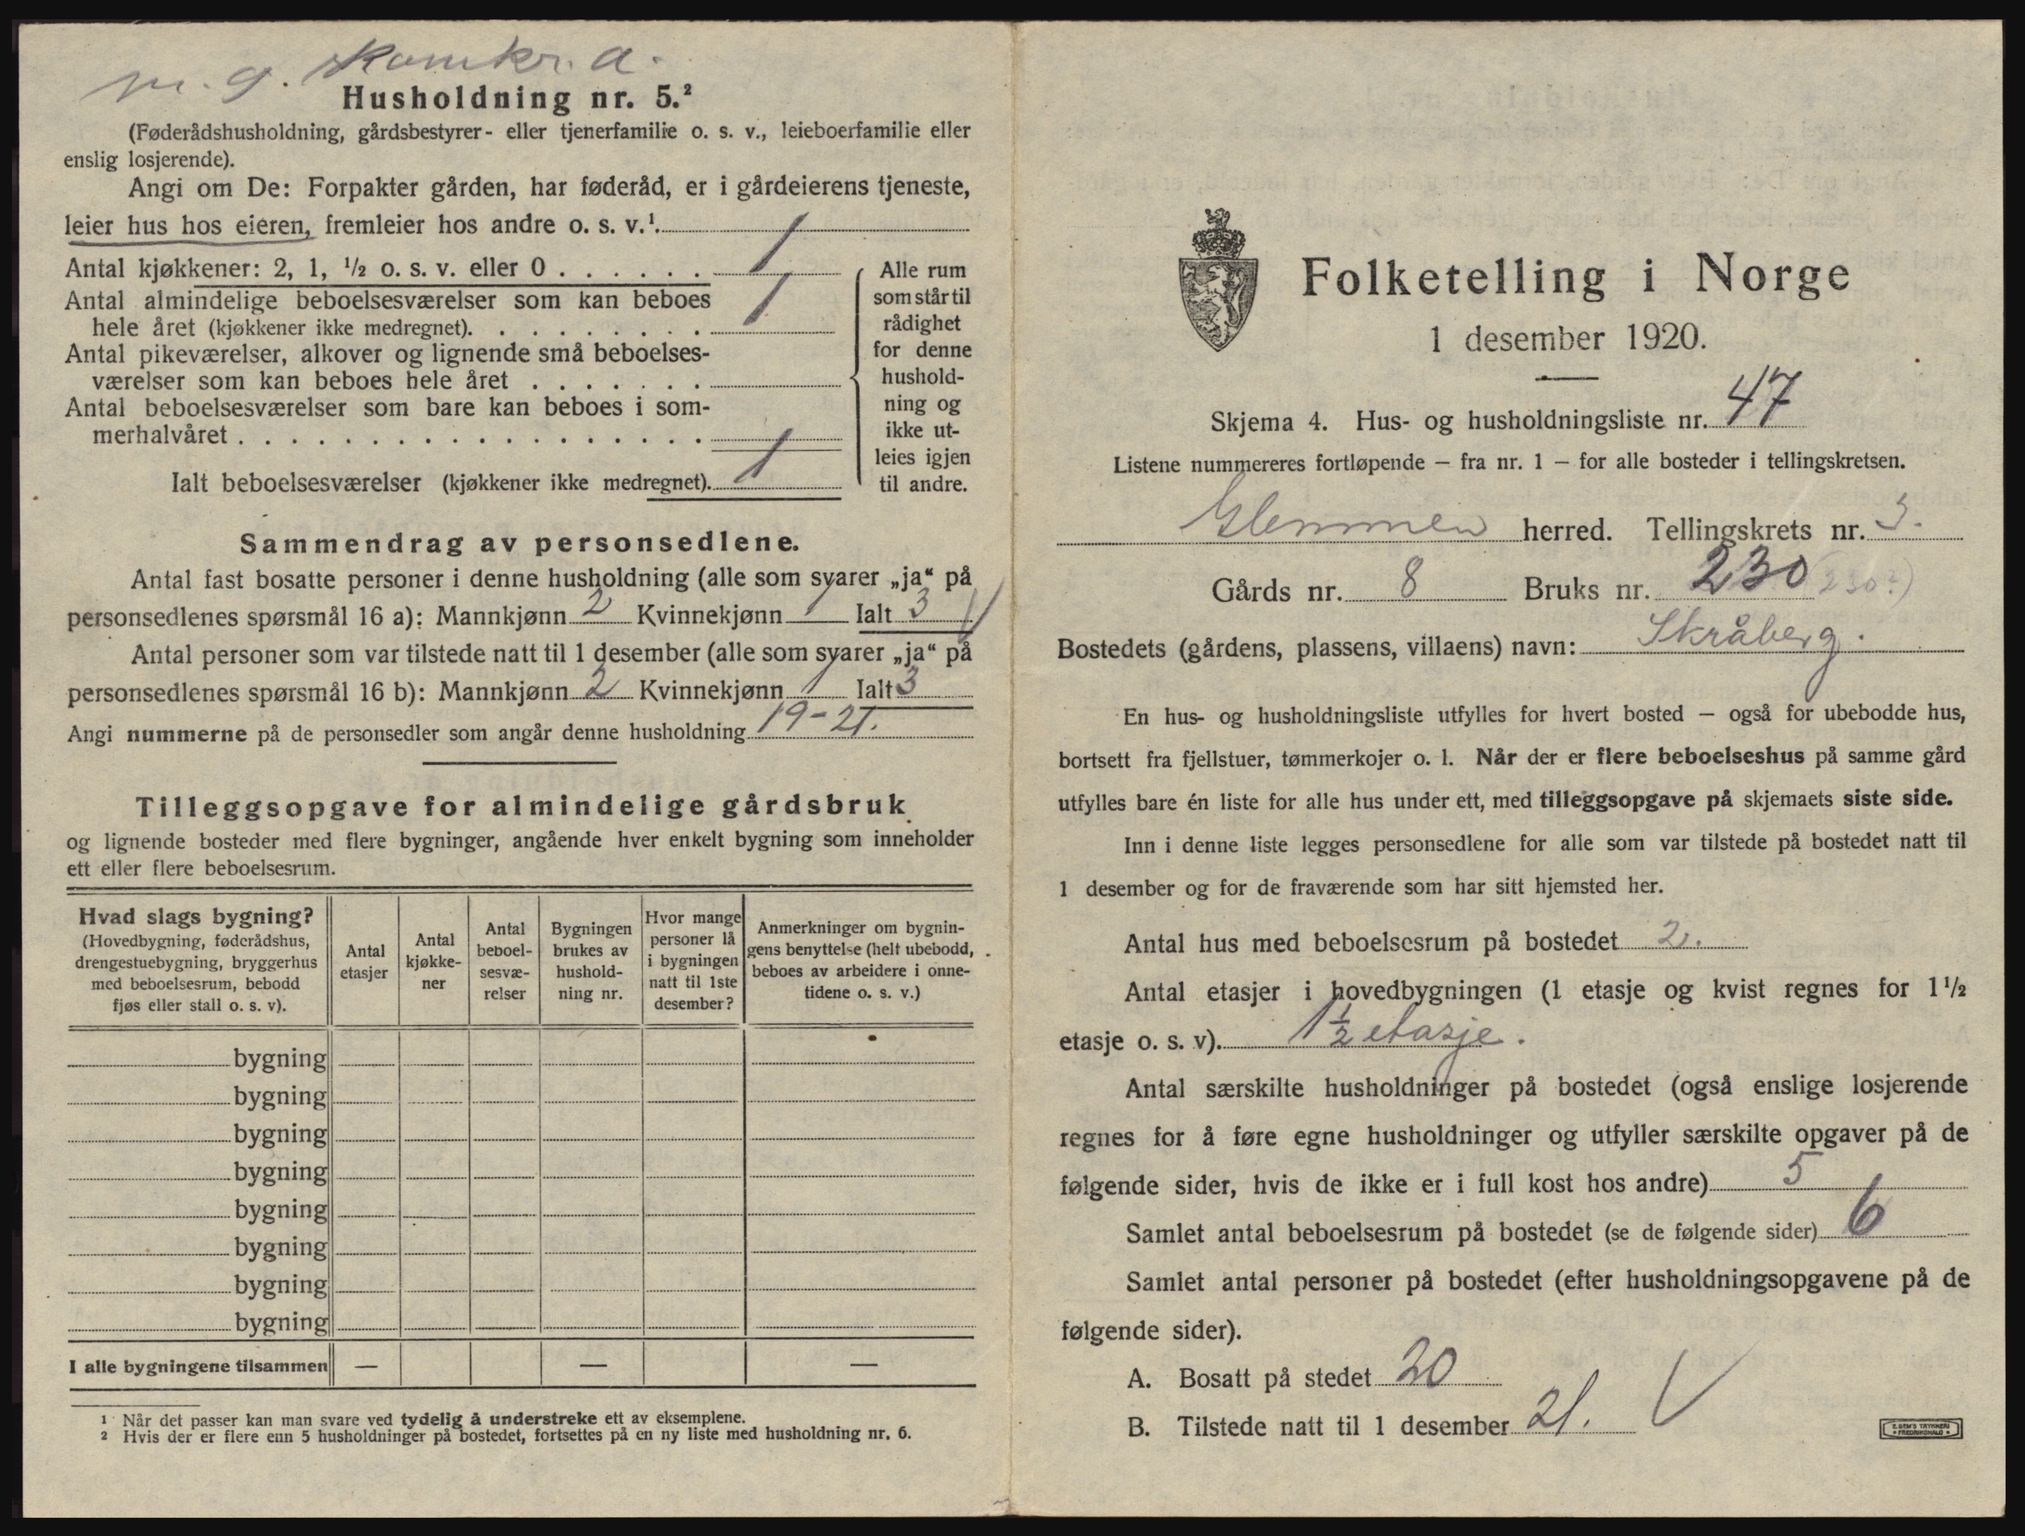 m. g. Komkr. a.
Husholdning nr. 5.²
(Føderådshusholdning, gårdsbestyrer- eller tjenerfamilie o. s. v., leieboerfamilie eller
enslig losjerende).
Angi om De: Forpakter gården, har føderåd, er i gårdeierens tjeneste,
leier hus hos eieren, fremleier hos andre o. s. v.¹.
Antal kjøkkener: 2, 1, ½ o. s. v. eller 0 . . . . . . 1
Antal almindelige beboelsesværelser som kan beboes
hele året (kjøkkener ikke medregnet). . . . . . . . . 1
Antal pikeværelser, alkover og lignende små beboelses-
værelser som kan beboes hele året . . . . . . .
Antal beboelsesværelser som bare kan beboes i som-
merhalvåret . . . . . . . . . . . . . . . . . .
Ialt beboelsesværelser (kjøkkener ikke medregnet). 1
Alle rum
som står til
rådighet
for denne
hushold-
ning og
ikke ut-
leies igjen
til andre.
Sammendrag av personsedlene.
Antal fast bosatte personer i denne husholdning (alle som svarer „ja“ på
personsedlenes spørsmål 16 a): Mannkjønn 2 Kvinnekjønn 1 Ialt 3 V
Antal personer som var tilstede natt til 1 desember (alle som svarer „ja“ på
personsedlenes spørsmål 16 b): Mannkjønn 2 Kvinnekjønn 1 Ialt 3
Angi nummerne på de personsedler som angår denne husholdning 19-21.
Tilleggsopgave for almindelige gårdsbruk
og lignende bosteder med flere bygninger, angående hver enkelt bygning som inneholder
ett eller flere beboelsesrum.
Hvad slags bygning?
(Hovedbygning, føderådshus,
drengestuebygning, bryggerhus
med beboelsesrum, bebodd
fjøs eller stall o. s. v).
Antal
etasjer
Antal
kjøkke-
ner
Antal
beboel-
sesvæ-
relser
Bygningen
brukes av
hushold-
ning nr.
Hvor mange
personer lå
i bygningen
natt til 1ste
desember?
Anmerkninger om bygnin-
gens benyttelse (helt ubebodd,
beboes av arbeidere i onne-
tidene o. s. v.)
bygning
bygning
bygning
bygning
bygning
bygning
bygning
bygning
I alle bygningene tilsammen — — —
¹ Når det passer kan man svare ved tydelig å understreke ett av eksemplene.
² Hvis der er flere enn 5 husholdninger på bostedet, fortsettes på en ny liste med husholdning nr. 6.
Folketelling i Norge
1 desember 1920.
Skjema 4. Hus- og husholdningsliste nr. 47
Listene nummereres fortløpende — fra nr. 1 — for alle bosteder i tellingskretsen.
Glemmen herred. Tellingskrets nr. 3.
Gårds nr. 8 Bruks nr. 230 (230?)
Bostedets (gårdens, plassens, villaens) navn: Skråberg.
En hus- og husholdningsliste utfylles for hvert bosted — også for ubebodde hus,
bortsett fra fjellstuer, tømmerkojer o. l. Når der er flere beboelseshus på samme gård
utfylles bare én liste for alle hus under ett, med tilleggsopgave på skjemaets siste side.
Inn i denne liste legges personsedlene for alle som var tilstede på bostedet natt til
1 desember og for de fraværende som har sitt hjemsted her.
Antal hus med beboelsesrum på bostedet 2.
Antal etasjer i hovedbygningen (1 etasje og kvist regnes for 1½
etasje o. s. v). 1½ etasje.
Antal særskilte husholdninger på bostedet (også enslige losjerende
regnes for å føre egne husholdninger og utfyller særskilte opgaver på de
følgende sider, hvis de ikke er i full kost hos andre) 5
Samlet antal beboelsesrum på bostedet (se de følgende sider) 6
Samlet antal personer på bostedet (efter husholdningsopgavene på de
følgende sider).
A. Bosatt på stedet 20
B. Tilstede natt til 1 desember 21. V
E. SEM'S TRYKKERI
FREDRIKSHALD